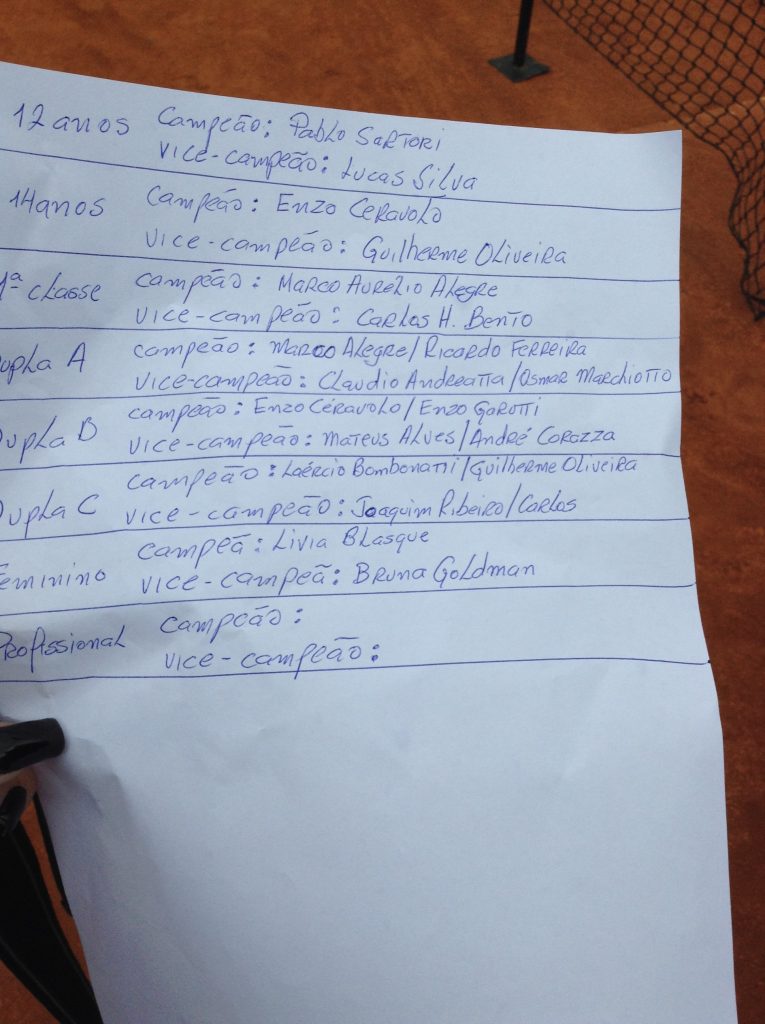 12 anos Campeão: Pablo Sartori
Vice-campeão: Lucas Silva
14 anos Campeão: Enzo Ceravolo
Vice-campeão: Guilherme Oliveira
1ª classe campeão: Marco Aurélio Alegre
Vice-campeão: Carlos H. Bento
upla A campeão: Marco Alegre/Ricardo Ferreira
Vice-campeão: Claudio Andreatta/Osmar Marchiotto
Dupla B campeão: Enzo Ceravolo/Enzo Gorotti
Vice-campeão: Mateus Alves/André Corazza
Dupla C campeão: Laércio Bombonatti/Guilherme Oliveira
Vice-campeão: Joaquim Ribeiro/Carlos
Feminino Campeã: Livia Blasque
Vice-campeã: Bruna Goldman
Profissional Campeão:
Vice-campeão: